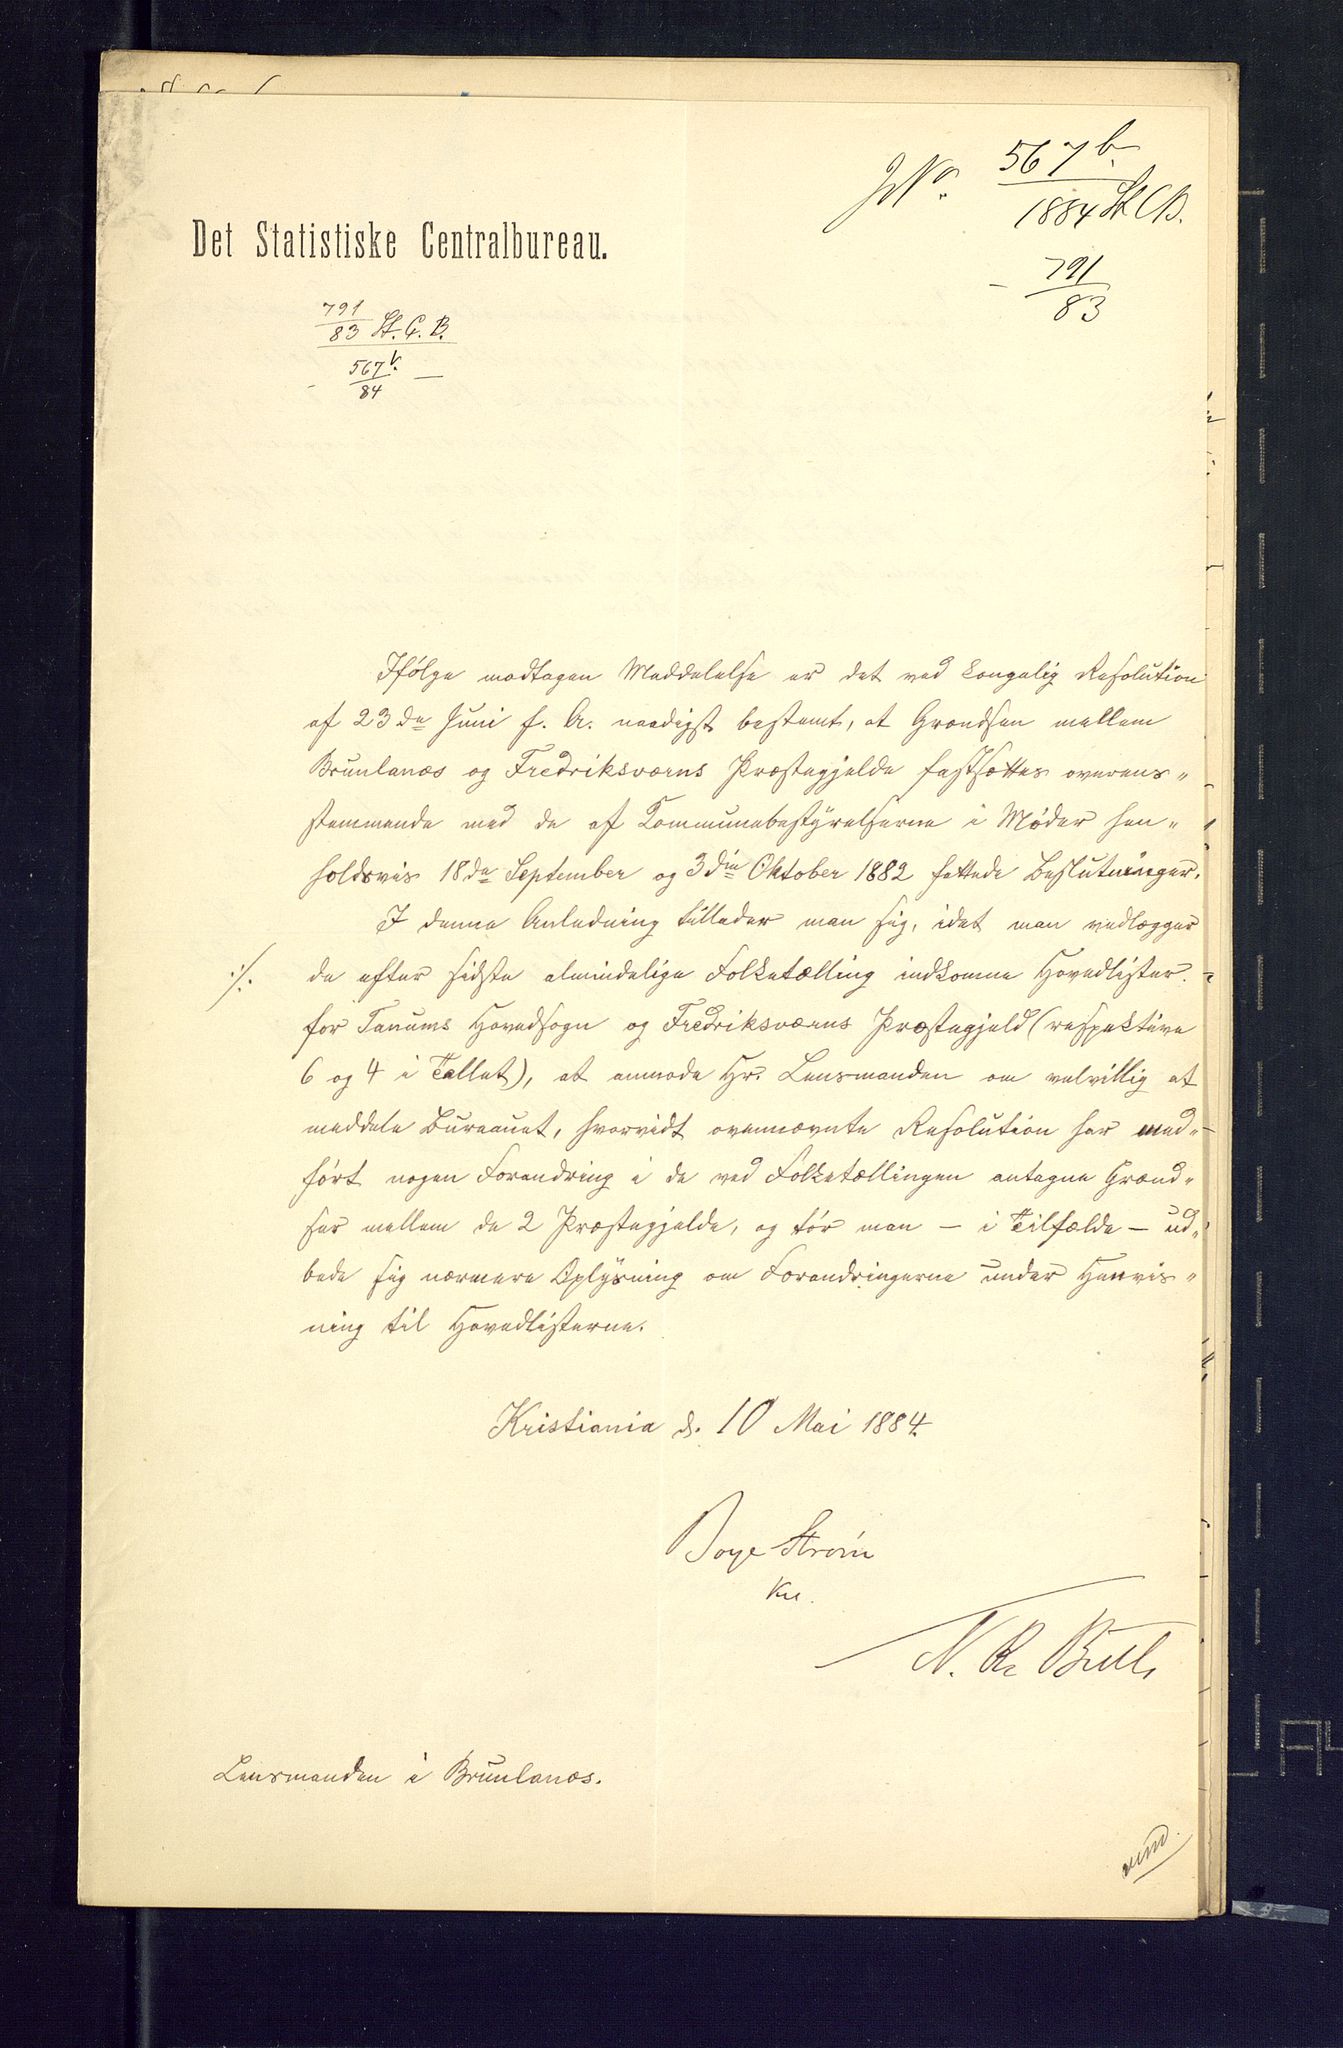 JNo. 567 b.
1884 St. C. B.
- 791
83
Det Statistiske Centralbureau.
791
83 St. C. B.
- 567 b. -
84
Ifølge modtagen Meddelelse er det ved kongelig Resolution
af 23de Juni f. A. naadigst bestemt, at Grændsen mellem
Brunlanæs og Fredriksværns Præstegjelde fastsættes overens-
stemmende med de af Kommunebestyrelserne i Møder hen-
holdsvis 18de September og 3die Oktober 1882 fattede Beslutninger.
I denne Anledning tillader man sig, idet man vedlægger
./. de efter sidste almindelige Folketælling indkomne Hovedlister
for Tanums Hovedsogn og Fredriksværns Præstegjeld (respektive
6 og 4 i Tallet), at anmode Hr. Lensmanden om velvillig at
meddele Bureauet, hvorvidt ovennævnte Resolution har med-
ført nogen Forandring i de ved Folketællingen antagne Grænd-
ser mellem de 2 Præstegjelde, og tør man - i Tilfælde - ud-
bede sig nærmere Oplysning om Forandringerne under Henvis-
ning til Hovedlisterne.
Kristiania d. 10 Mai 1884.
Boye Strøm
kst.
N. R. Bull
Lensmanden i Brunlanæs.
vend.